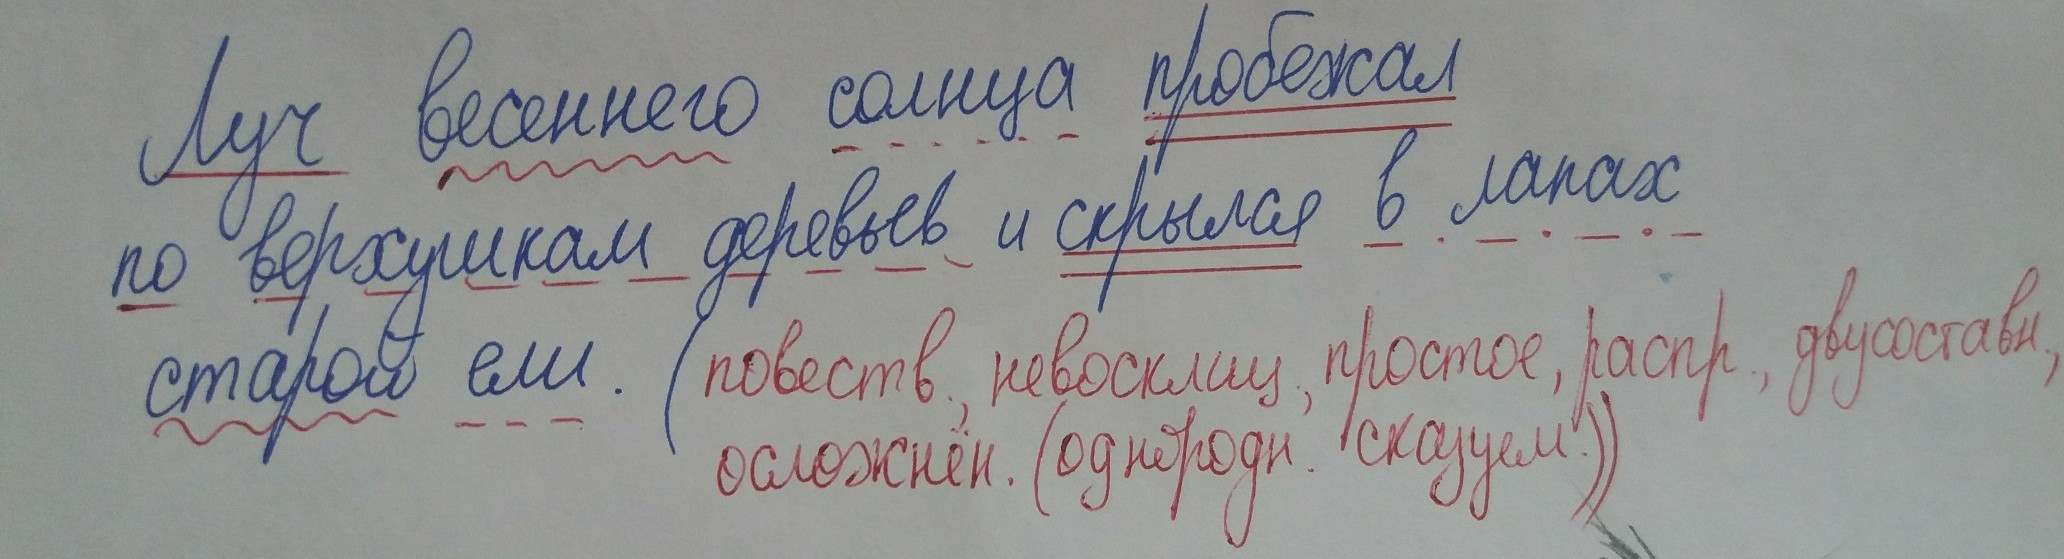 Луч весеннего солнца пробежал
по верхушкам деревьев и скрылся в лапах
старой ели. (повеств., невосклиц., простое, распр., двусоставн.,
осложнён. (однородн. сказуем.))